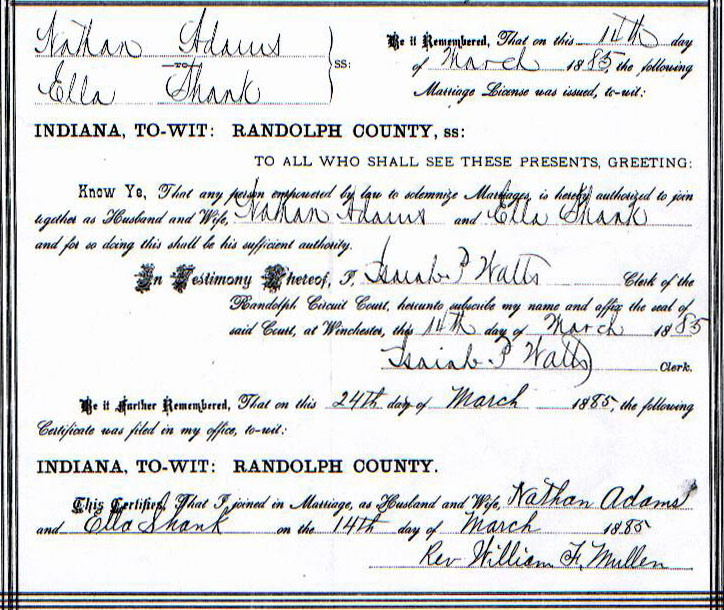 Nathan Adams
TO
Ella Shank
SS:
Be it Remembered, That on this 14th day
of March 1885, the following
Marriage License was issued, to-wit:
INDIANA, TO-WIT: RANDOLPH COUNTY, SS:
TO ALL WHO SHALL SEE THESE PRESENTS, GREETING:
Know Ye, That any person empowered by law to solemnize Marriages, is hereby authorized to join
together as Husband and Wife, Nathan Adams and Ella Shank
and for so doing this shall be his sufficient authority.
In Testimony Whereof, I, Isaiah P Watts Clerk of the
Randolph Circuit Court, hereunto subscribe my name and affix the seal of
said Court, at Winchester, this 14th day of March 1885
Isaiah P Watts Clerk.
Be it Further Remembered, That on this 24th day of March 1885, the following
Certificate was filed in my office, to-wit:
INDIANA, TO-WIT: RANDOLPH COUNTY.
This Certifies, That I joined in Marriage, as Husband and Wife, Nathan Adams
and Ella Shank on the 14th day of March 1885
Rev William F. Mullen